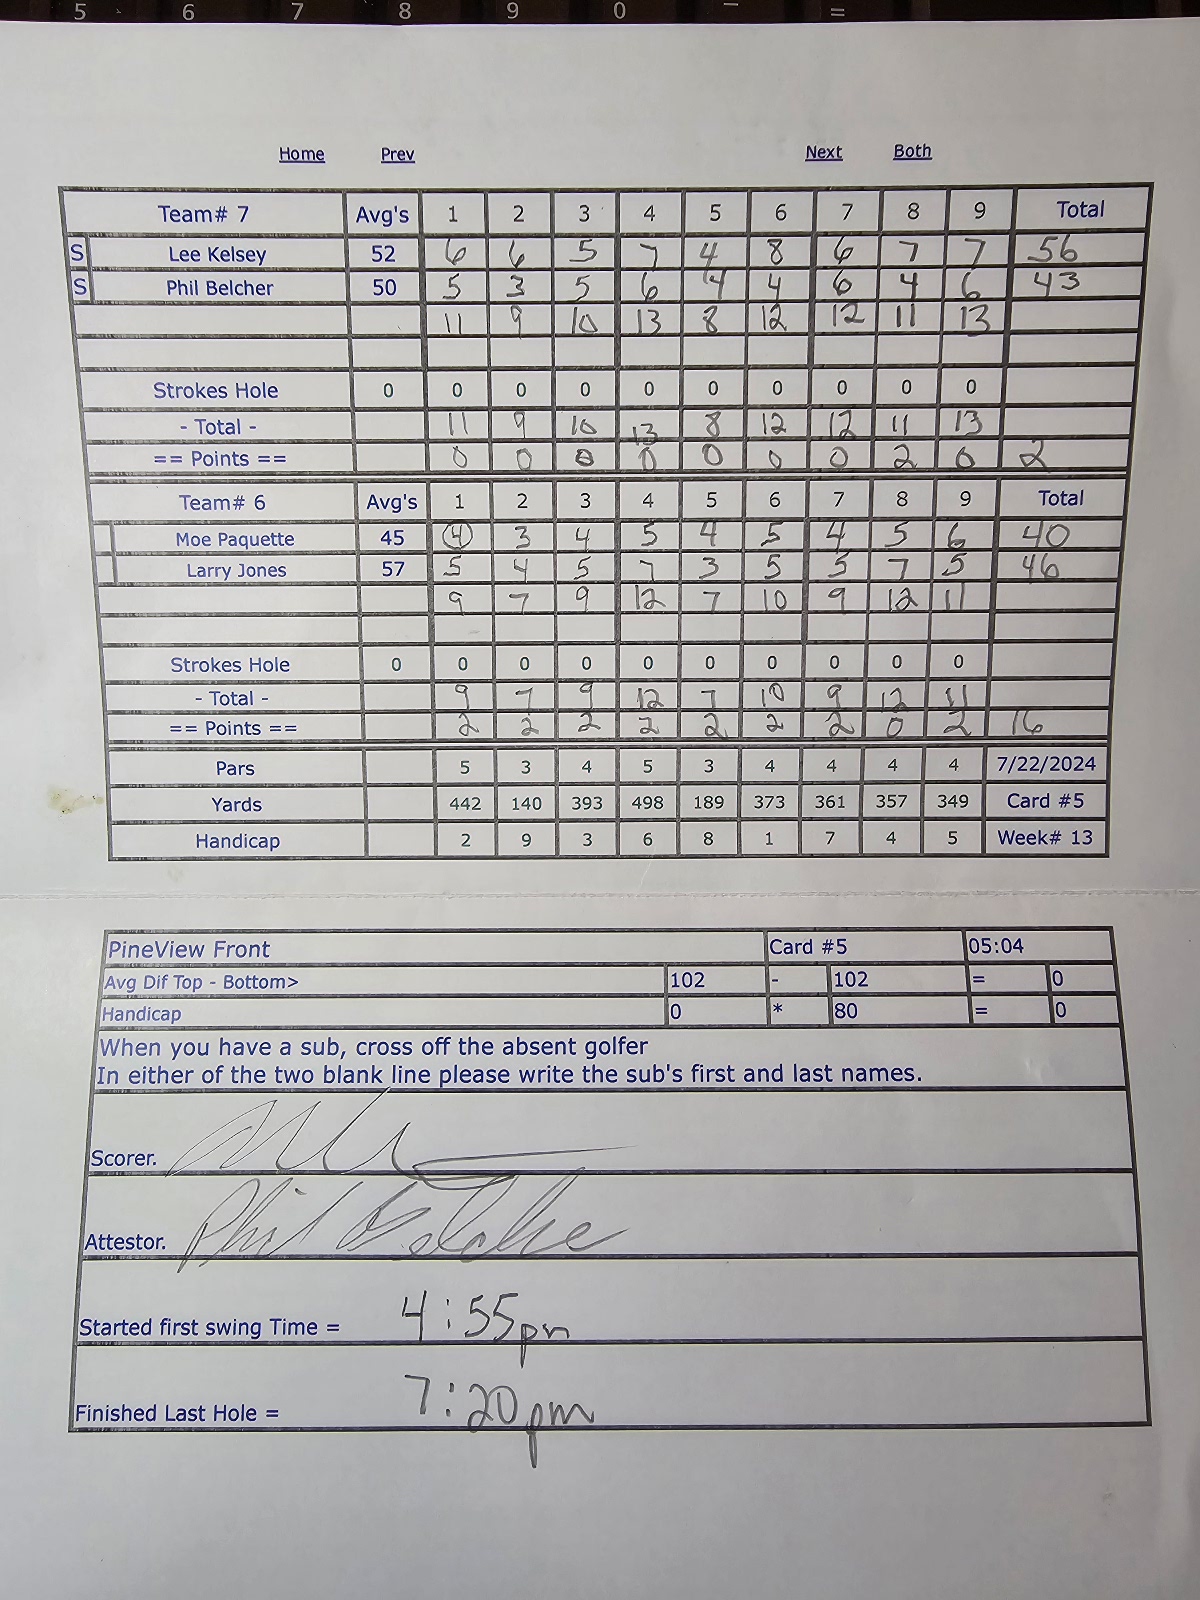 5 6 7 8 9 0 – =
Home Prev Next Both
Team# 7 Avg's 1 2 3 4 5 6 7 8 9 Total
S Lee Kelsey 52 6 6 5 7 4 8 6 7 7 56
S Phil Belcher 50 5 3 5 6 4 4 6 4 6 43
11 9 10 13 8 12 12 11 13
Strokes Hole 0 0 0 0 0 0 0 0 0 0
- Total - 11 9 10 13 8 12 12 11 13
== Points == 0 0 0 0 0 0 0 2 0 2
Team# 6 Avg's 1 2 3 4 5 6 7 8 9 Total
Moe Paquette 45 4 3 4 5 4 5 4 5 6 40
Larry Jones 57 5 4 5 7 3 5 5 7 5 46
9 7 9 12 7 10 9 12 11
Strokes Hole 0 0 0 0 0 0 0 0 0 0
- Total - 9 7 9 12 7 10 9 12 11
== Points == 2 2 2 2 2 2 2 0 2 16
Pars 5 3 4 5 3 4 4 4 4 7/22/2024
Yards 442 140 393 498 189 373 361 357 349 Card #5
Handicap 2 9 3 6 8 1 7 4 5 Week# 13
PineView Front Card #5 05:04
Avg Dif Top - Bottom> 102 - 102 = 0
Handicap 0 * 80 = 0
When you have a sub, cross off the absent golfer
In either of the two blank line please write the sub's first and last names.
Scorer.
Attestor. Phil Belcher
Started first swing Time = 4:55pm
Finished Last Hole = 7:20pm